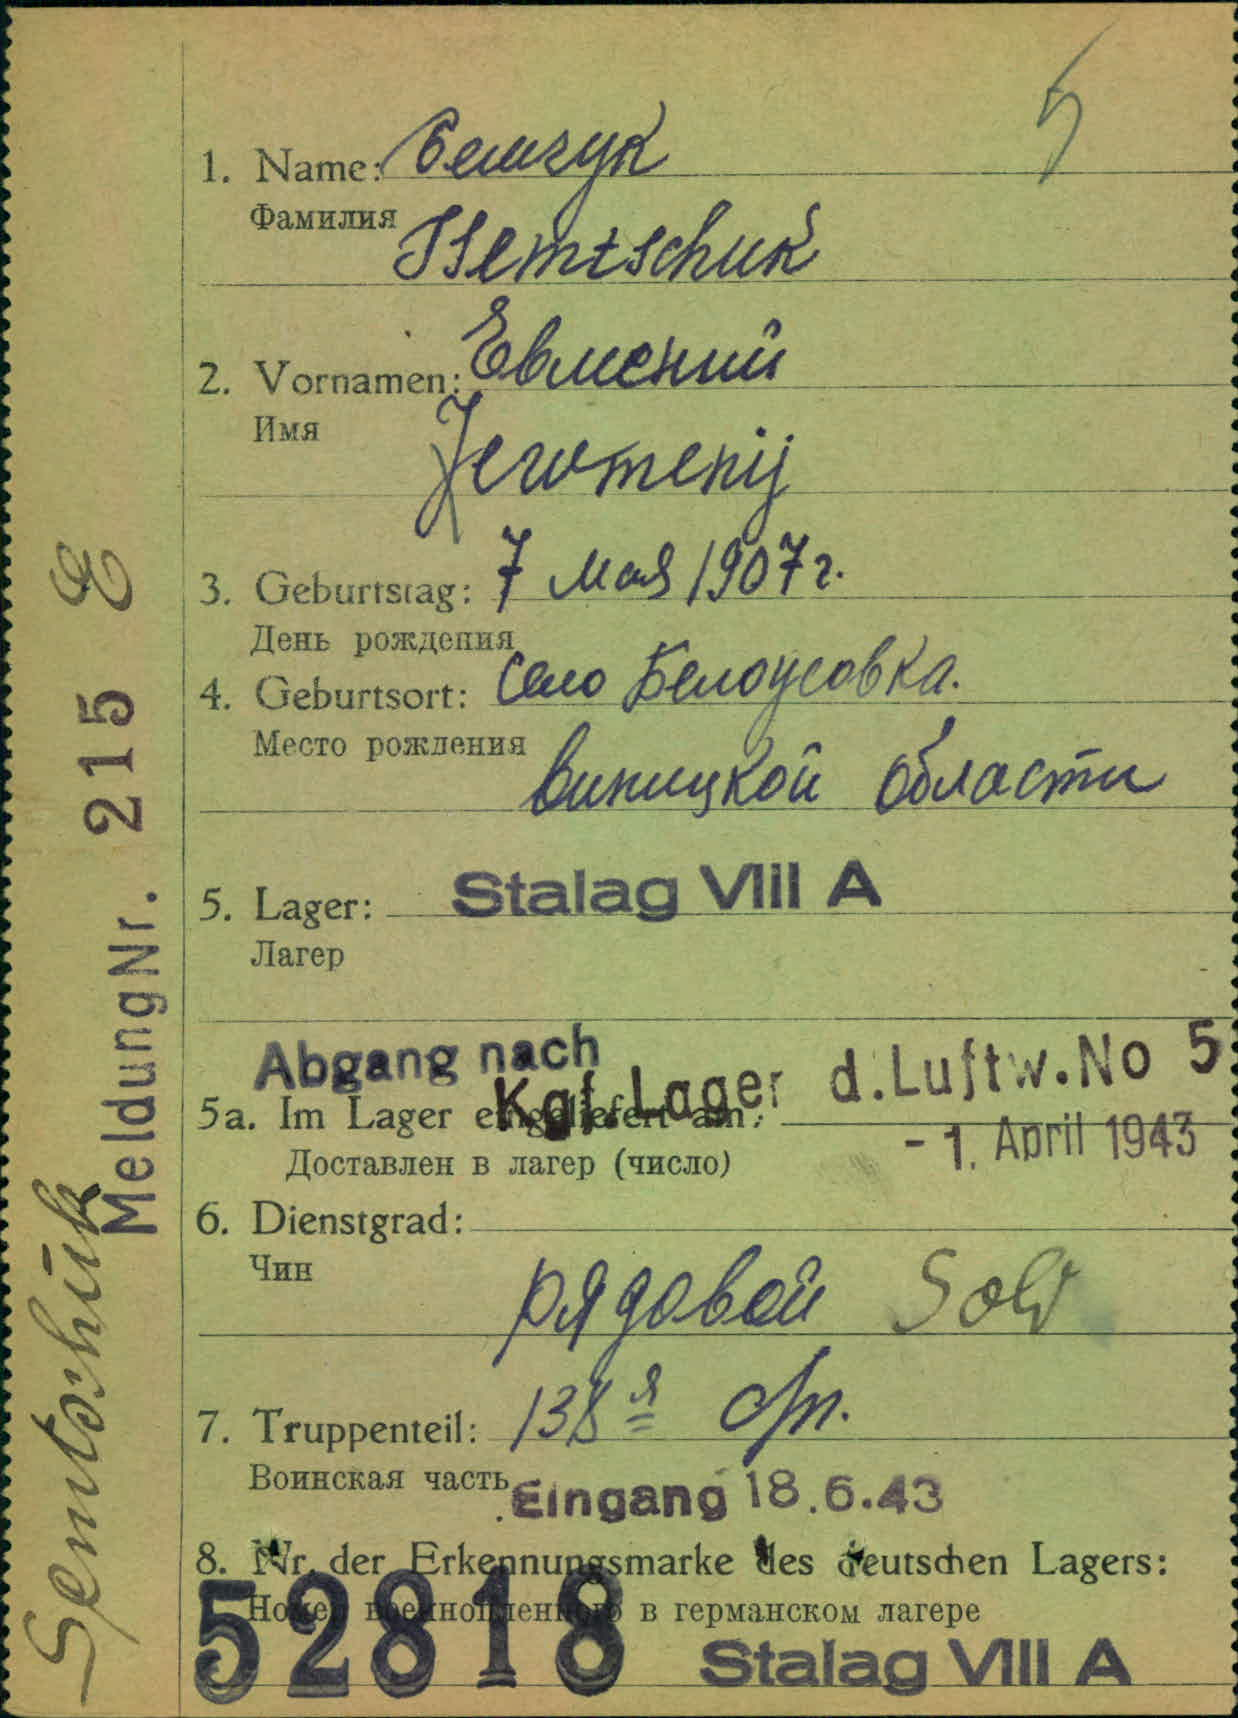 5
1. Name: Семчук
Фамилия
Ssemtschuk
2. Vornamen: Евмений
Имя
Jewmenij
3. Geburtstag: 7 мая 1907 г.
День рождения
4. Geburtsort: село Белоусовка.
Место рождения
Виницкой области
5. Lager: Stalag VIII A
Лагер
Abgang nach
Kgf. Lager d. Luftw. No 5
5a. Im Lager eingeliefert am:
- 1. April 1943
Доставлен в лагер (число)
6. Dienstgrad:
Чин
рядовой Sold
7. Truppenteil: 138я
Воинская часть
Eingang 18.6.43
8. Nr. der Erkennungsmarke des deutschen Lagers:
Номер военнопленного в германском лагере
52818
Stalag VIII A
Semtschuk
Meldung Nr. 215